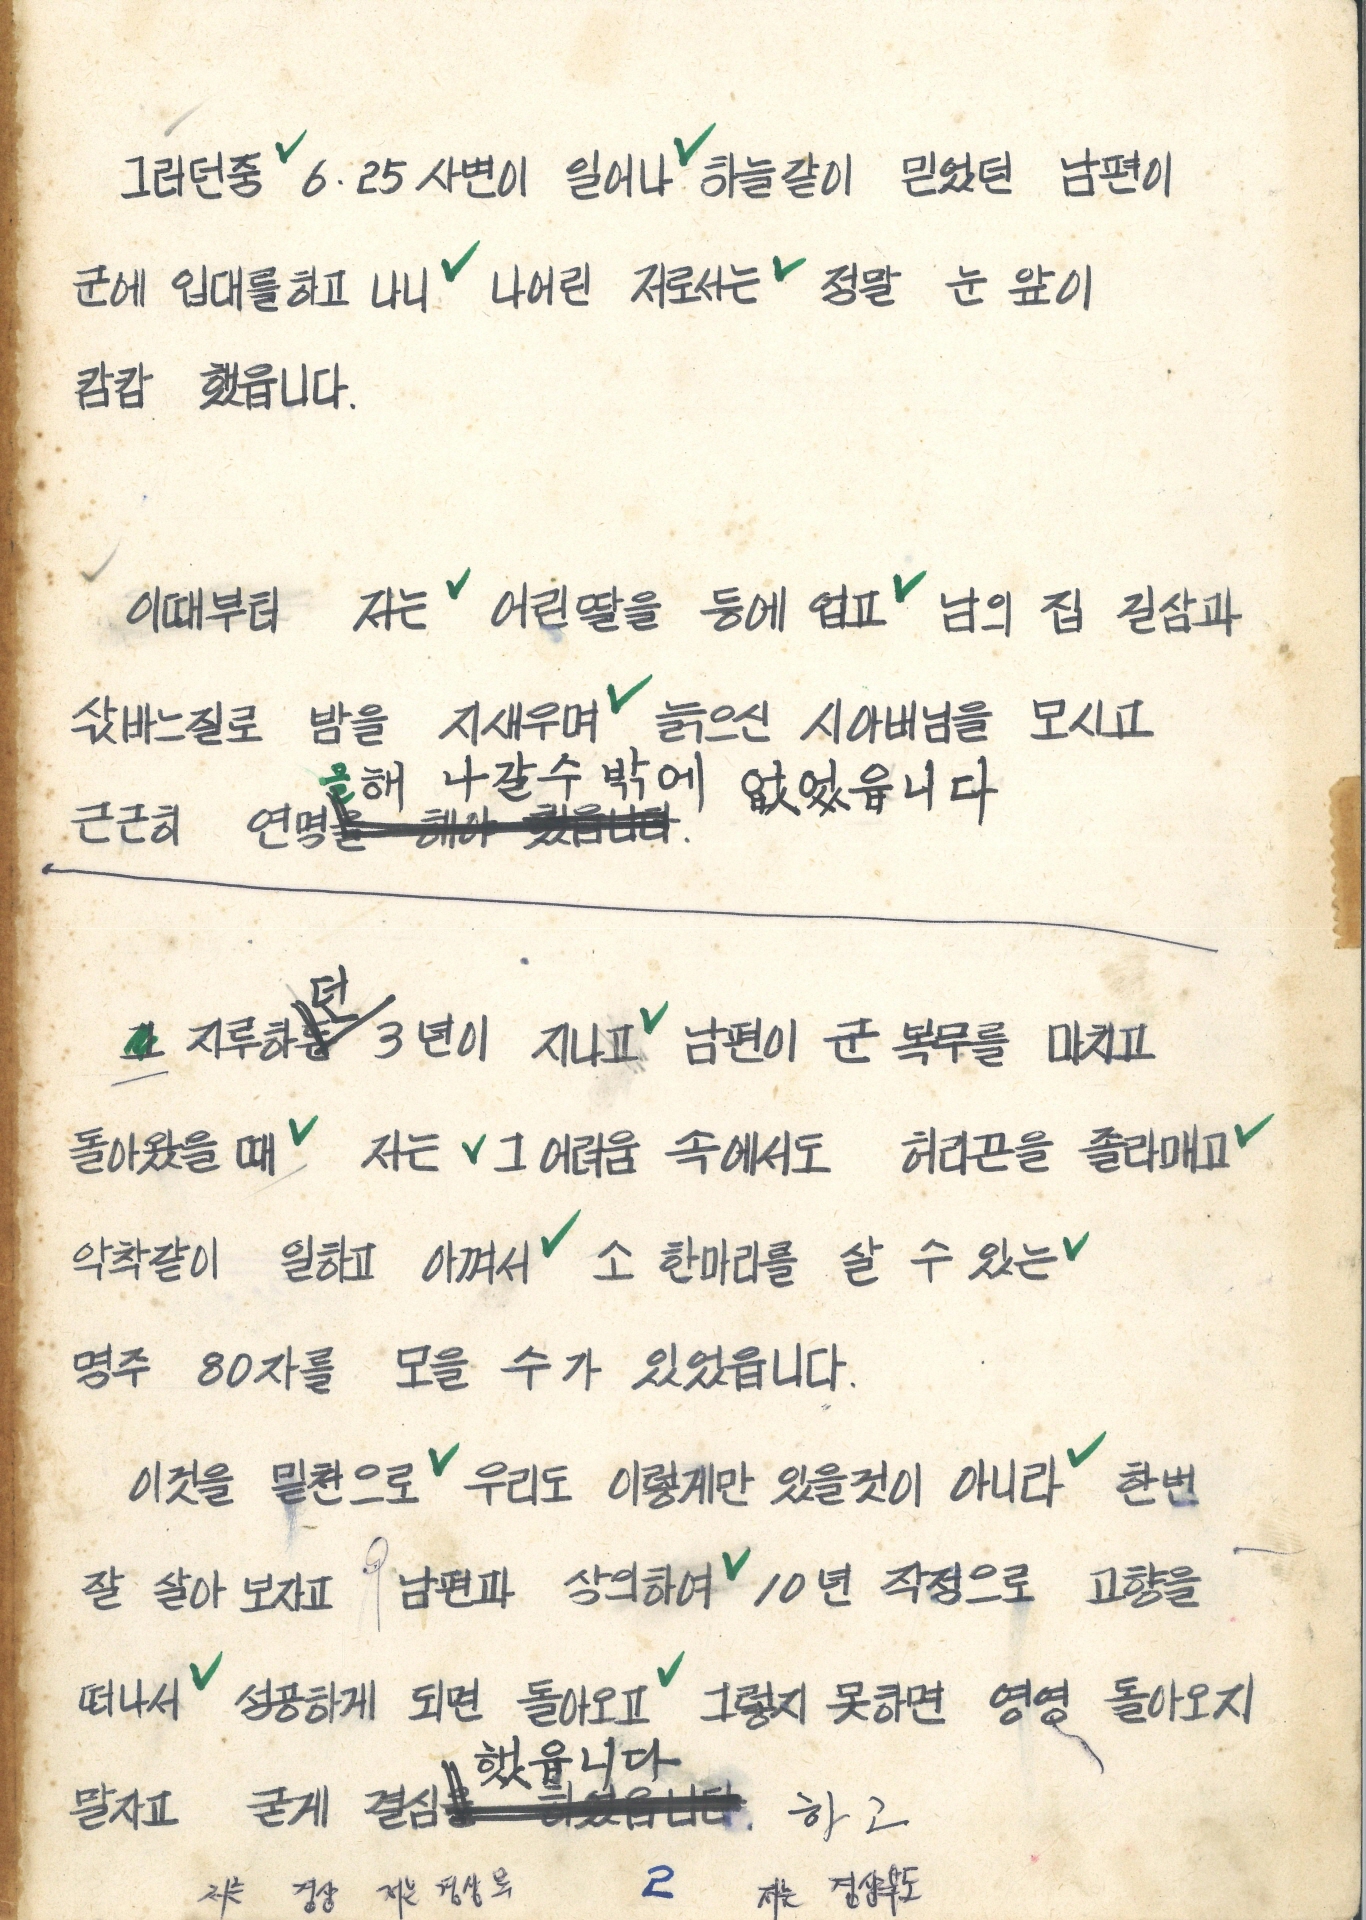 그러던중 6.25 사변이 일어나 하늘같이 믿었던 남편이
군에 입대를하고 나니 나어린 저로서는 정말 눈 앞이
캄캄 했읍니다.
이때부터 저는 어린딸을 등에 업고 남의 집 길삼과
삯바느질로 밤을 지새우며 늙으신 시아버님을 모시고
해 나갈수 밖에 없었읍니다
근근히 연명을 해야 했읍니다.
던
그 지루하든 3년이 지나고 남편이 군 복무를 마치고
돌아왔을 때 저는 그 어려움 속에서도 허리끈을 졸라매고
악착같이 일하고 아껴서 소 한마리를 살 수 있는
명주 80자를 모을 수가 있었읍니다.
이것을 밑천으로 우리도 이렇게만 있을것이 아니라 한번
잘 살아 보자고 남편과 상의하여 10년 작정으로 고향을
떠나서 성공하게 되면 돌아오고 그렇지 못하면 영영 돌아오지
했읍니다
말자고 굳게 결심을 하였읍니다. 하고
저는 경상 저는 경상북 2 저는 경상북도